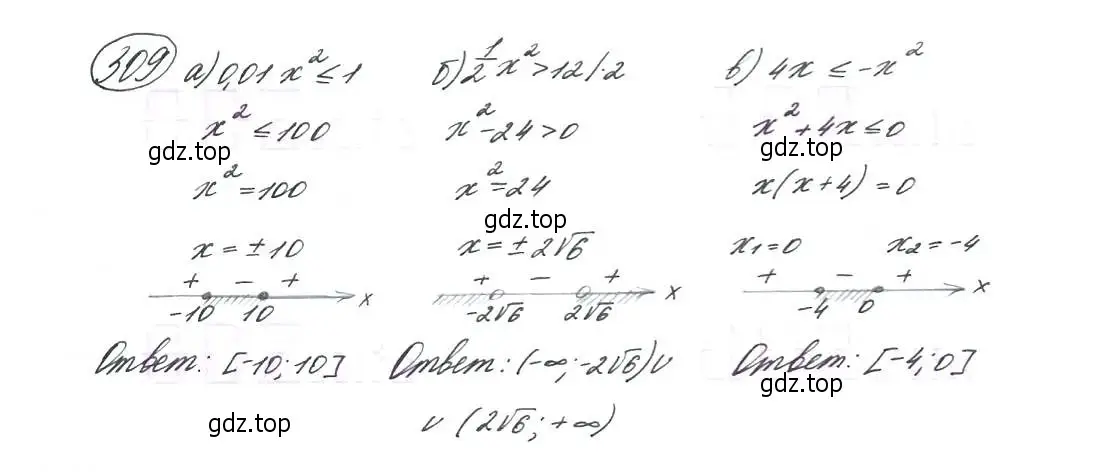 309 а) 0,01x² ≤ 1
x² ≤ 100
gdz.top
x² = 100
x = ±10
+ − +
-10 10 x
Ответ: [-10; 10]
gdz.top
б) 1/2 x² > 12 | ·2
x² - 24 > 0
x² = 24
gdz.top
x = ±2√6
+ − +
-2√6 2√6 x
Ответ: (-∞; -2√6) ∪
∪ (2√6; +∞)
в) 4x ≤ -x²
x² + 4x ≤ 0
gdz.top
x(x+4) = 0
x₁=0 x₂=-4
+ − +
-4 0 x
Ответ: [-4; 0]
gdz.top